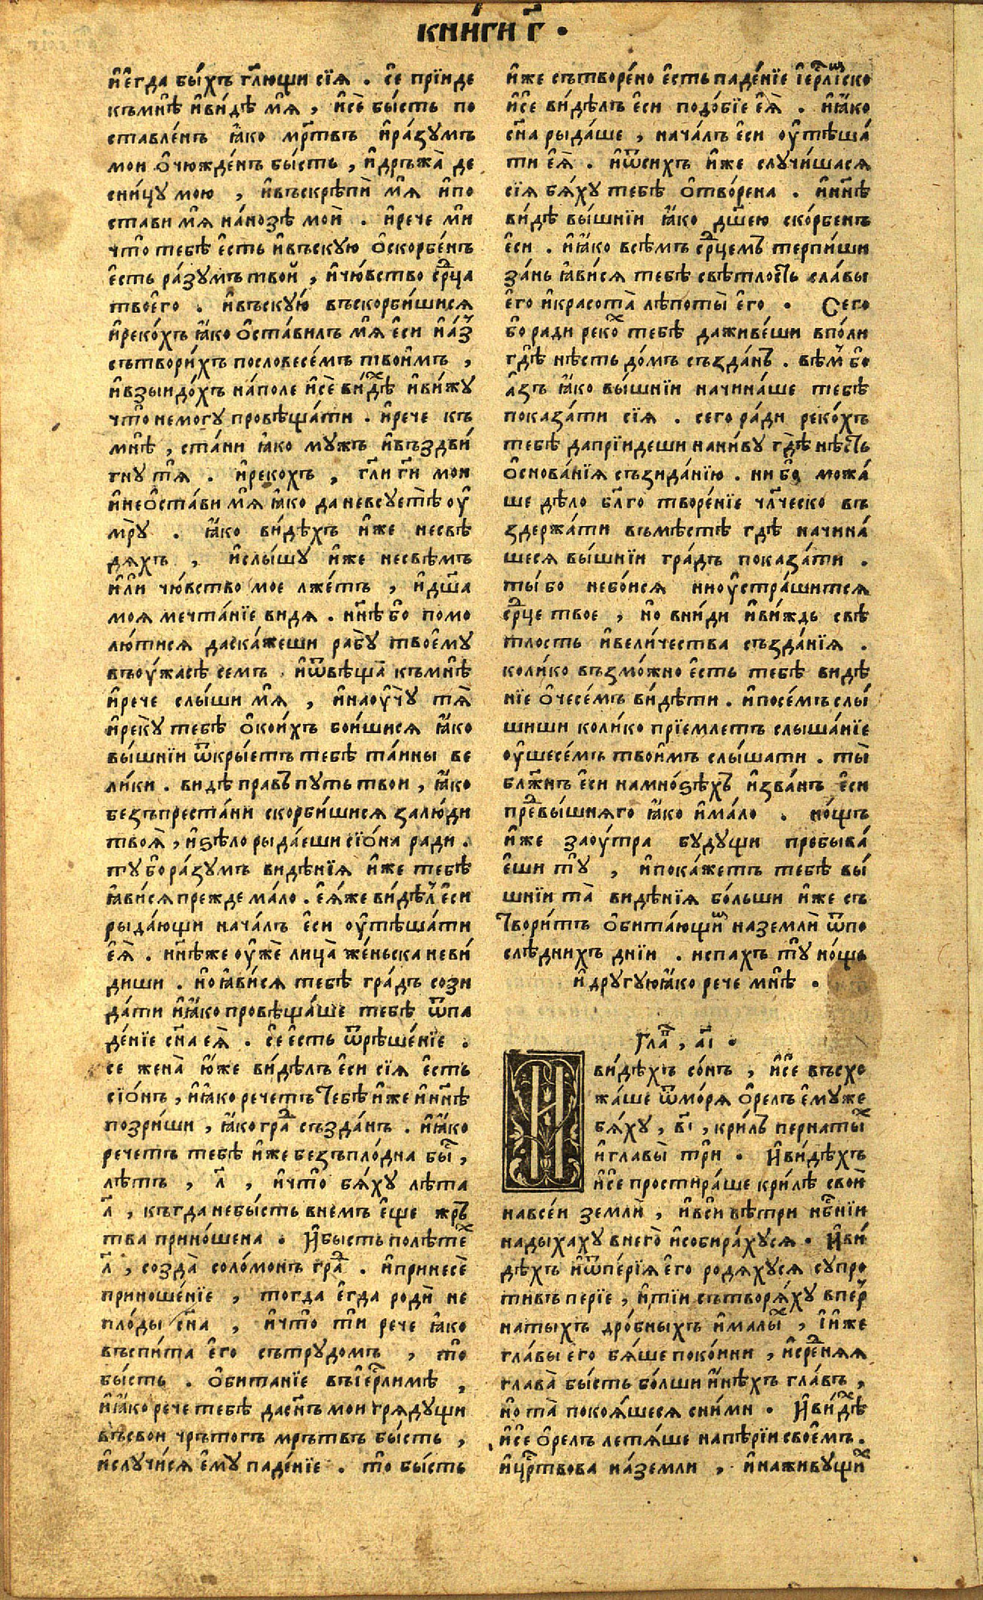 КНИ́ГИ Г҃ .
и҆е҆гда бы́хъ гл҃ющи сїѧ̀ . се̏ прїиде
къмнѣ̀ и҆ви́дѣ мѧ̀ , и҆се̏ бы́сть по
ставле́нъ ꙗ҆́ко мр҃твъ и҆ра́зꙋмъ
мои ѡ҆чюжде́нъ бы́сть , и҆дръжа̀ де
сни́цꙋ мою , и҆въскрѣпи́ мѧ̀ и҆по
стави мѧ̀ на́нозѣ мои̏ . и҆рече ми
что̀ тебѣ̀ є҆сть и҆въскꙋю ѡ҆скорбе́нъ
є҆сть ра́зꙋмъ твой , и҆чю́вство ср҃ца
твоего̀ . и҆въскꙋю́ въскорби́шисѧ
и҆реко́хъ ꙗ҆́ко ѡ҆ста́вилъ мѧ̀ є҆си и҆а҆́з
сътвори́хъ пословесе́мъ твои҆мъ ,
и҆взыидо́хъ на́поле и҆се̏ ви́дѣ и҆ви́жꙋ
что̀ немогꙋ провѣща́ти . и҆рече къ
мнѣ̀ , ста́ни ꙗ҆́ко мꙋжъ и҆въздви́
гнꙋ тѧ̀ . и҆рекохъ , гл҃и гн҃и мои
и҆неѡ҆ста́ви мѧ̀ ꙗ҆́ко да невсꙋе́тѣ оу҆
мрꙋ̀ . ꙗ҆́ко ви́дѣхъ и҆́же несвѣ́
дѧхъ , и҆слы́шꙋ и҆́же несвѣмъ
и҆лѝ чю́вство мое лже́тъ , и҆дш҃а
моѧ мечта́нїе видѧ . нн҃ѣ бо помо
лю́тисѧ даска́жеши рабꙋ̀ твоемꙋ̀
въоу҆́жасѣ семъ . и҆ѿвѣща̀ къмнѣ̀
и҆рече слы́ши мѧ̀ , и҆наоучꙋ̀ тѧ̀
и҆рекꙋ̀ тебѣ̀ ѡ҆ко́ихъ бои́шисѧ ꙗ҆́ко
вы́шнїи ѿкры́етъ тебѣ̀ та́ины ве
ли́ки . видѣ̀ правъ пꙋть твои , ꙗ҆́ко
безъпреста́ни скорби́шисѧ залю́ди
твоѧ̀ , и҆ѕѣло рыда́еши сїо́на ради .
тꙋ бо ра́зꙋмъ видѣ́нїѧ и҆́же тебѣ̀
ꙗ҆ви́сѧ прежде ма́ло . е҆ѧ́же ви́дѣл є҆си
рыда́ющи нача́лъ є҆си оу҆тѣша́ти
е҆ѧ̀ . нн҃ѣже оу҆жѐ лица̀ же́ньска неви́
диши . но ꙗ҆ви́сѧ тебѣ̀ гра́дъ сози
да́ти и҆ꙗ҆́ко провѣща́ше тебѣ̀ ѿпа
де́нїе сн҃а еѧ̀ . се̏ є҆сть ѿрѣше́нїе .
се жена̀ ю҆́же ви́дѣлъ є҆си сїѧ̀ є҆сть
сїо́нъ , и҆ꙗ҆́ко речетъ тебѣ̀ и҆́же и҆нн҃ѣ
позри́ши , ꙗ҆́ко гра́д създа́нъ . и҆ꙗ҆́ко
речетъ тебѣ̀ и҆́же безъпло́дна бы̏ ,
лѣтъ , л҃ , и҆что̀ бѧ́хꙋ лѣта
л҃ , къгда небы́сть внемъ є҆ще же́р
тва прино́шена . И҆бысть полѣте́х
л҃ , созда̀ соло́монъ гра́д . и҆принесѐ
приноше́нїе , тогда є҆гда родѝ не
пло́ды сн҃а , и҆что̀ ти рече ꙗ҆́ко
въспи́та его̀ сътрꙋдомъ , то̀
бы́сть . ѡ҆бита́нїе въі҆ер҃лимѣ ,
и҆ꙗ҆́ко рече тебѣ̀ дасн҃ъ мои грѧдꙋщи
въсвои чръто́гъ мръ́твъ бы́сть ,
и҆слꙋчи́сѧ ємꙋ̀ паде́нїе . то̀ бы́сть
и҆́же сътворе́но є҆сть паде́нїе і҆ер҃лимско
и҆се̏ ви́дѣлъ є҆си подо́бїе е҆ѧ̀ . и҆ꙗ҆́ко
сн҃а рыда́ше , нача́лъ є҆си оу҆тѣша́
ти е҆ѧ̀ . и҆ѡ҆сихъ и҆́же слꙋчи́шасѧ
сїѧ бѧ́хꙋ тебѣ̀ ѡ҆тво́рена . и҆нн҃ѣ
ви́дѣ вы́шнїи ꙗ҆́ко дш҃ею ско́рбенъ
є҆си . и҆ꙗ҆́ко всѣмъ ср҃цемъ терпи́ши
за́нь ꙗ҆ви́сѧ тебѣ̀ свѣ́тлость сла́вы
его̀ и҆красота̀ лѣпоты̀ его̀ . Сего
бо ради реко́х тебѣ̀ даживе́ши впо́ли
гдѣ̀ нѣ́сть до́мъ създа́нъ . вѣм бо
а҆́зъ ꙗ҆́ко вышнїи начина́ше тебѣ̀
показа́ти сїѧ̀ . сего ра́ди реко́хъ
тебѣ̀ дапрїидеши нани́вꙋ гдѣ̀ нѣ́сть
ѡ҆снова́нїѧ съзида́нїю . ни бо мо́жа
ше дѣло бл҃го творе́нїе чл҃ческо въ
здержа́ти въмѣ́стѣ гдѣ̀ начина́
шесѧ вы́шнїи гра́дъ показа́ти .
ты́ бо небо́исѧ ниоу҆страши́тсѧ
ср҃це твое , но вни́ди и҆ви́ждь свѣ́
тлость и҆вели́чества създа́нїѧ .
коли́ко възмо́жно є҆сть тебѣ̀ видѣ́
нїе ѡ҆чесе́мъ ви́дѣти . и҆посе́мъ слы́
шиши коли́ко прїе́млетъ слыша́нїе
оу҆шесе́мъ твои҆мъ слы́шати . ты̀
бл҃же́нъ є҆си намно́ѕѣхъ и҆зва́нъ є҆си
пре́вы́шнѧго ꙗ҆́ко и҆ма́ло . но́щъ
и҆́же заоу́тра бꙋдꙋщи пребыва́
е҆ши тꙋ̀ , и҆пока́жетъ тебѣ̀ вы́
шнїи та̀ видѣ́нїѧ бо́льши и҆́же съ
твори́тъ ѡ҆бита́ющим наземлѝ ѿпо
слѣ́днихъ дні́и . испахъ тꙋ̀ но́щь
и҆ дрꙋгꙋю ꙗ҆́ко рече мнѣ̀ .
Гла҃ , а҃і .
И ви́дѣхъ со́нъ , и҆се̏ въсхо
жа́ше ѿмо́рѧ ѻ҆ре́лъ е҆мꙋже
бѧ́хꙋ , в҃і , кри́лъ перна́ты
и҆главы̀ три . И҆ви́дѣхъ
и҆се̏ простира́ше кри́лѣ свои̏
навсе́и землѝ , и҆вси вѣ́три нб҃нїи
надыха́хꙋ внего̀ и҆собира́хꙋсѧ . И҆ви́
дѣхъ и҆ѿпе́рїѧ его̀ родѧ́хꙋсѧ сꙋпро
ти́въ пе́рїе , и҆тїи сътворѧ́хꙋ впер
наты́хъ дро́бныхъ и҆малы́х , и҆и҆́же
гла́вы его бѧ́ше поко́ини , исре́днѧѧ
глава̀ бы́сть бо́лши и҆нѣхъ гла́въ ,
но та̀ покоѧ́шесѧ сни́ми . И҆ви́дѣ
и҆се̏ ѻ҆ре́лъ летѧ́ше напе́рїи свое́мъ .
и҆цр҃твова на́земли , и҆наживꙋщи